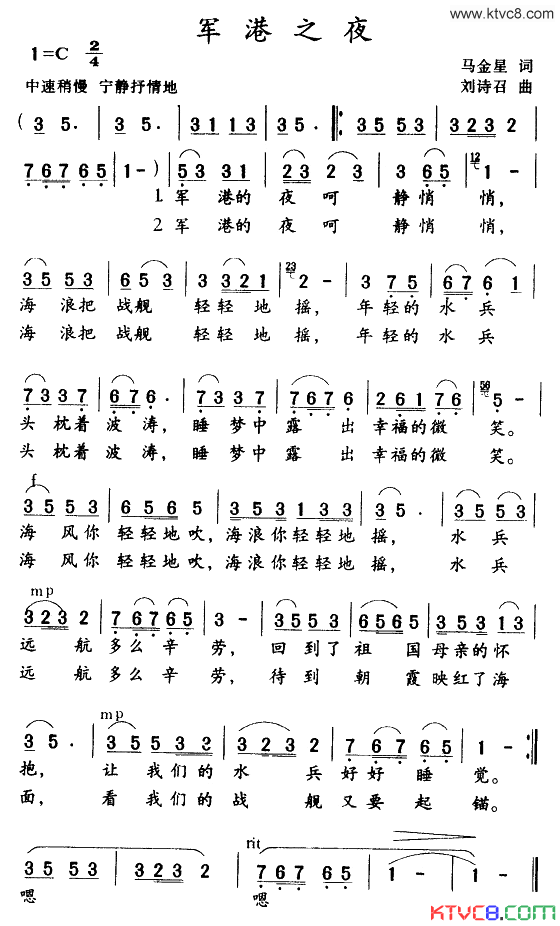 www.ktvc8.com
军港之夜
1=C 2/4
马金星 词
中速稍慢 宁静抒情地
刘诗召 曲
( 3 5. | 3 5. | 3 1 1 3 | 3 5. |: 3 5 5 3 | 3 2 3 2 |
7 6 7 6 5 | 1 - ) | 5 3 3 1 | 2 3 2 3 | 3 6 5 | 1 - |
1. 军 港的 夜呵 静悄 悄,
2 军 港的 夜呵 静悄 悄,
3 5 5 3 | 6 5 3 | 3 3 2 1 | 2 - | 3 7 5 | 6 7 6 1 |
海 浪把 战舰 轻轻 地 摇, 年轻的 水 兵
海 浪把 战舰 轻轻 地 摇, 年轻的 水 兵
7 3 3 7 | 6 7 6 . | 7 3 3 7 | 7 6 7 6 | 2 6 1 7 6 | 5 - |
头 枕着 波 涛, 睡 梦中 露 出 幸福的微 笑。
头 枕着 波 涛, 睡 梦中 露 出 幸福的微 笑。
f
3 5 5 3 | 6 5 6 5 | 3 5 5 3 1 3 3 | 3 5 . | 3 5 5 3 |
海 风你 轻轻地吹, 海浪你轻轻地 摇, 水 兵
海 风你 轻轻地吹, 海浪你轻轻地 摇, 水 兵
mp
3 2 3 2 | 7 6 7 6 5 | 3 - | 3 5 5 3 | 3 5 5 3 | 3 1 1 3 |
远 航 多么 辛 劳, 回 到了 祖 国 母亲的怀
远 航 多么 辛 劳, 待 到 朝 霞 映红了海
mp
3 5 . | 3 5 5 3 2 | 3 2 3 2 | 7 6 7 6 5 | 1 - :|
抱, 让 我们的 水 兵 好好 睡 觉。
面, 看 我们的 战 舰 又要 起 锚。
rit
3 5 5 3 | 3 2 3 2 | 7 6 7 6 5 | 1 - | 1 - |
嗯 嗯
KTVC8.COM